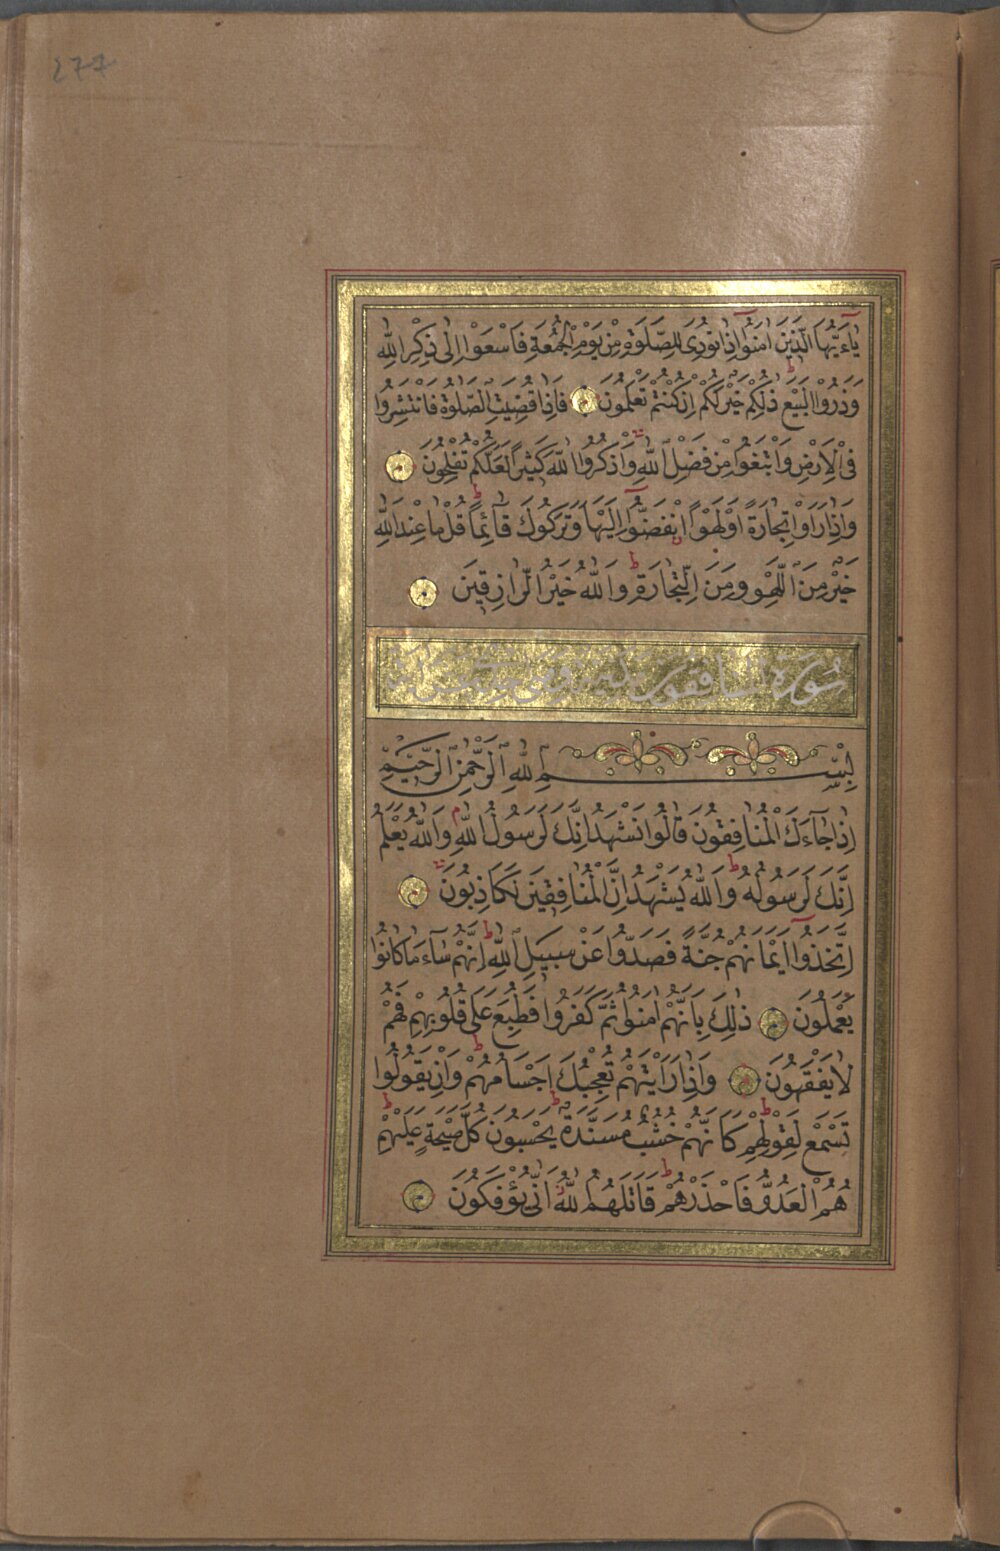 ٤٧٧
يَٰٓاءَيُّهَا الَّذِينَ اٰمَنُوٓا اِذَا نُودِىَ لِلصَّلَوٰةِ مِنْ يَوْمِ الْجُمُعَةِ فَاسْعَوْا اِلٰى ذِكْرِ اللّٰهِ
وَذَرُوا الْبَيْعَ ذٰلِكُمْ خَيْرٌ لَكُمْ اِنْ كُنْتُمْ تَعْلَمُونَ فَاِذَا قُضِيَتِ الصَّلٰوةُ فَانْتَشِرُوا
فِى الْاَرْضِ وَابْتَغُوا مِنْ فَضْلِ اللّٰهِ وَاذْكُرُوا اللّٰهَ كَثِيرًا لَعَلَّكُمْ تُفْلِحُونَ
وَاِذَا رَاَوْا تِجَارَةً اَوْ لَهْوًا انْفَضُّوٓا اِلَيْهَا وَتَرَكُوكَ قَٓائِمًا قُلْ مَا عِنْدَ اللّٰهِ
خَيْرٌ مِنَ اللَّهْوِ وَمِنَ التِّجَارَةِ وَاللّٰهُ خَيْرُ الرَّازِقِينَ
سُورَة المنافقون
بِسْمِ اللّٰهِ الرَّحْمٰنِ الرَّحِيمِ
اِذَا جَٓاءَكَ الْمُنَافِقُونَ قَالُوا نَشْهَدُ اِنَّكَ لَرَسُولُ اللّٰهِ وَاللّٰهُ يَعْلَمُ
اِنَّكَ لَرَسُولُهُ وَاللّٰهُ يَشْهَدُ اِنَّ الْمُنَافِقِينَ لَكَاذِبُونَ
اِتَّخَذُوٓا اَيْمَانَهُمْ جُنَّةً فَصَدُّوا عَنْ سَبِيلِ اللّٰهِ اِنَّهُمْ سَٓاءَ مَا كَانُوا
يَعْمَلُونَ ذٰلِكَ بِاَنَّهُمْ اٰمَنُوا ثُمَّ كَفَرُوا فَطُبِعَ عَلٰى قُلُوبِهِمْ فَهُمْ
لَا يَفْقَهُونَ وَاِذَا رَاَيْتَهُمْ تُعْجِبُكَ اَجْسَامُهُمْ وَاِنْ يَقُولُوا
تَسْمَعْ لِقَوْلِهِمْ كَاَنَّهُمْ خُشُبٌ مُسَنَّدَةٌ يَحْسَبُونَ كُلَّ صَيْحَةٍ عَلَيْهِمْ
هُمُ الْعَدُوُّ فَاحْذَرْهُمْ قَاتَلَهُمُ اللّٰهُ اَنّٰى يُؤْفَكُونَ